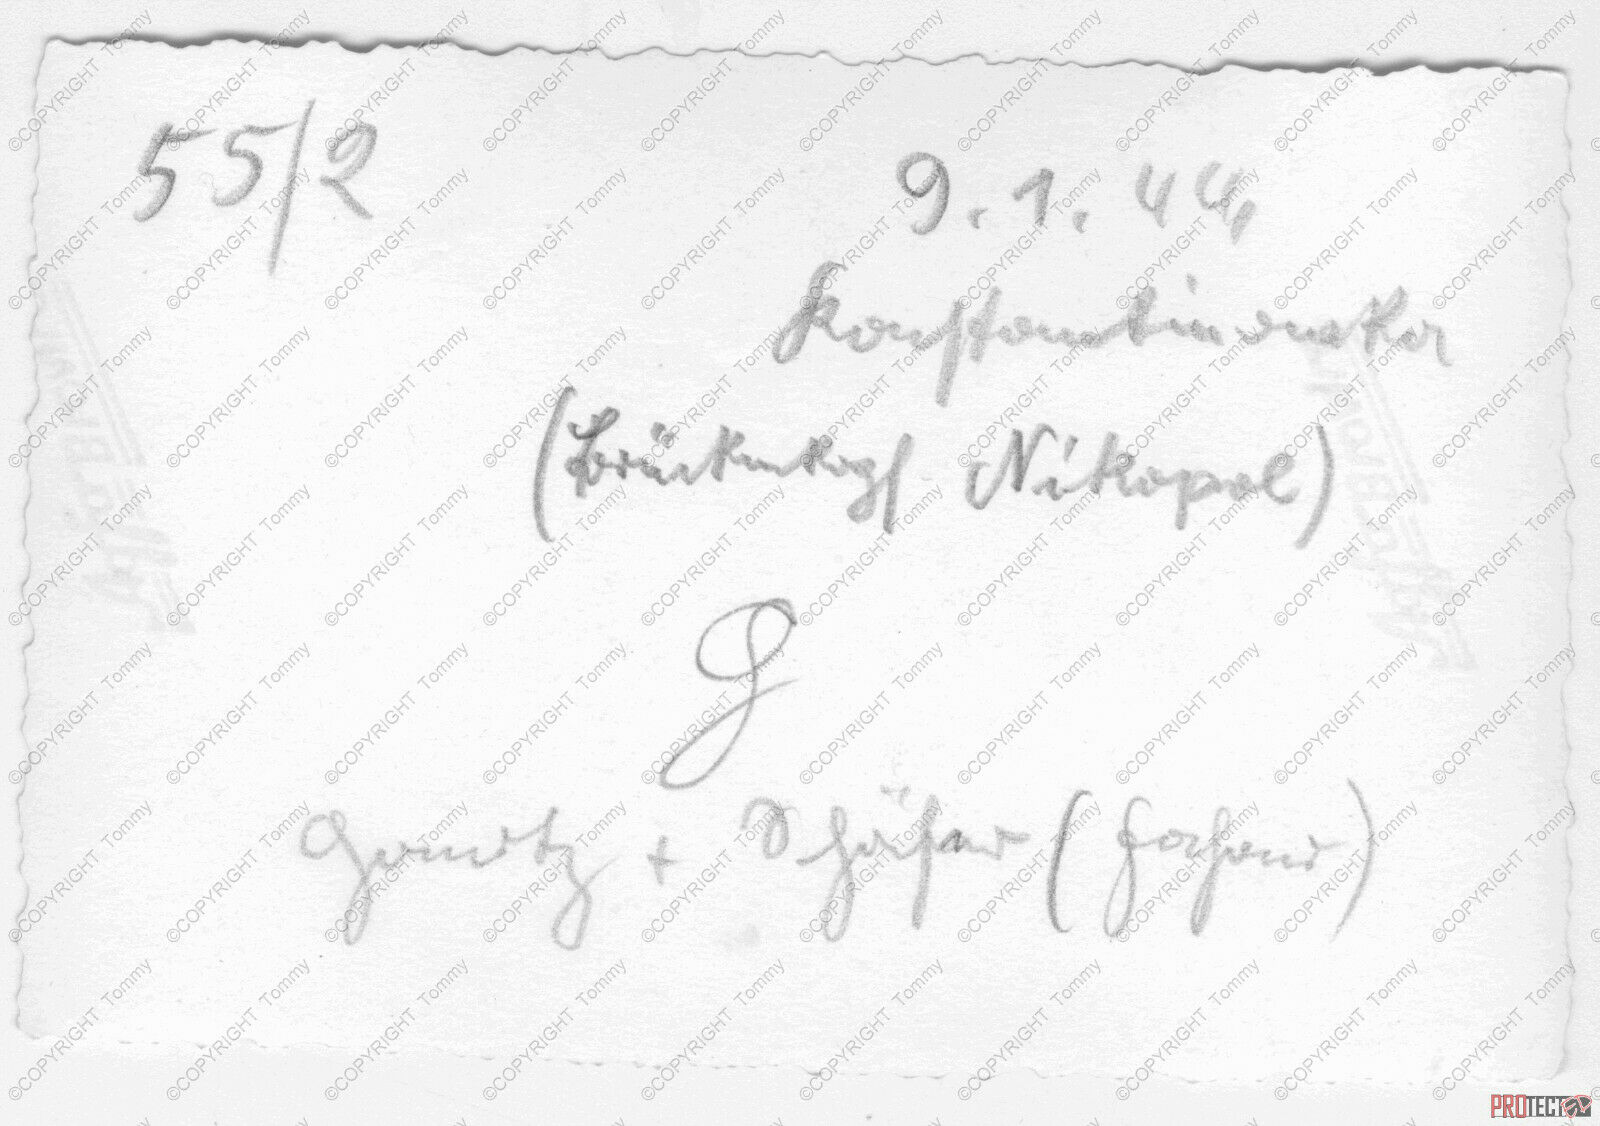 55/2
9.1.44.
Konstantinowka
(Brückenkopf Nikopol)
G
+ Schäfer (Johann)
©COPYRIGHT Tommy
PROTECT